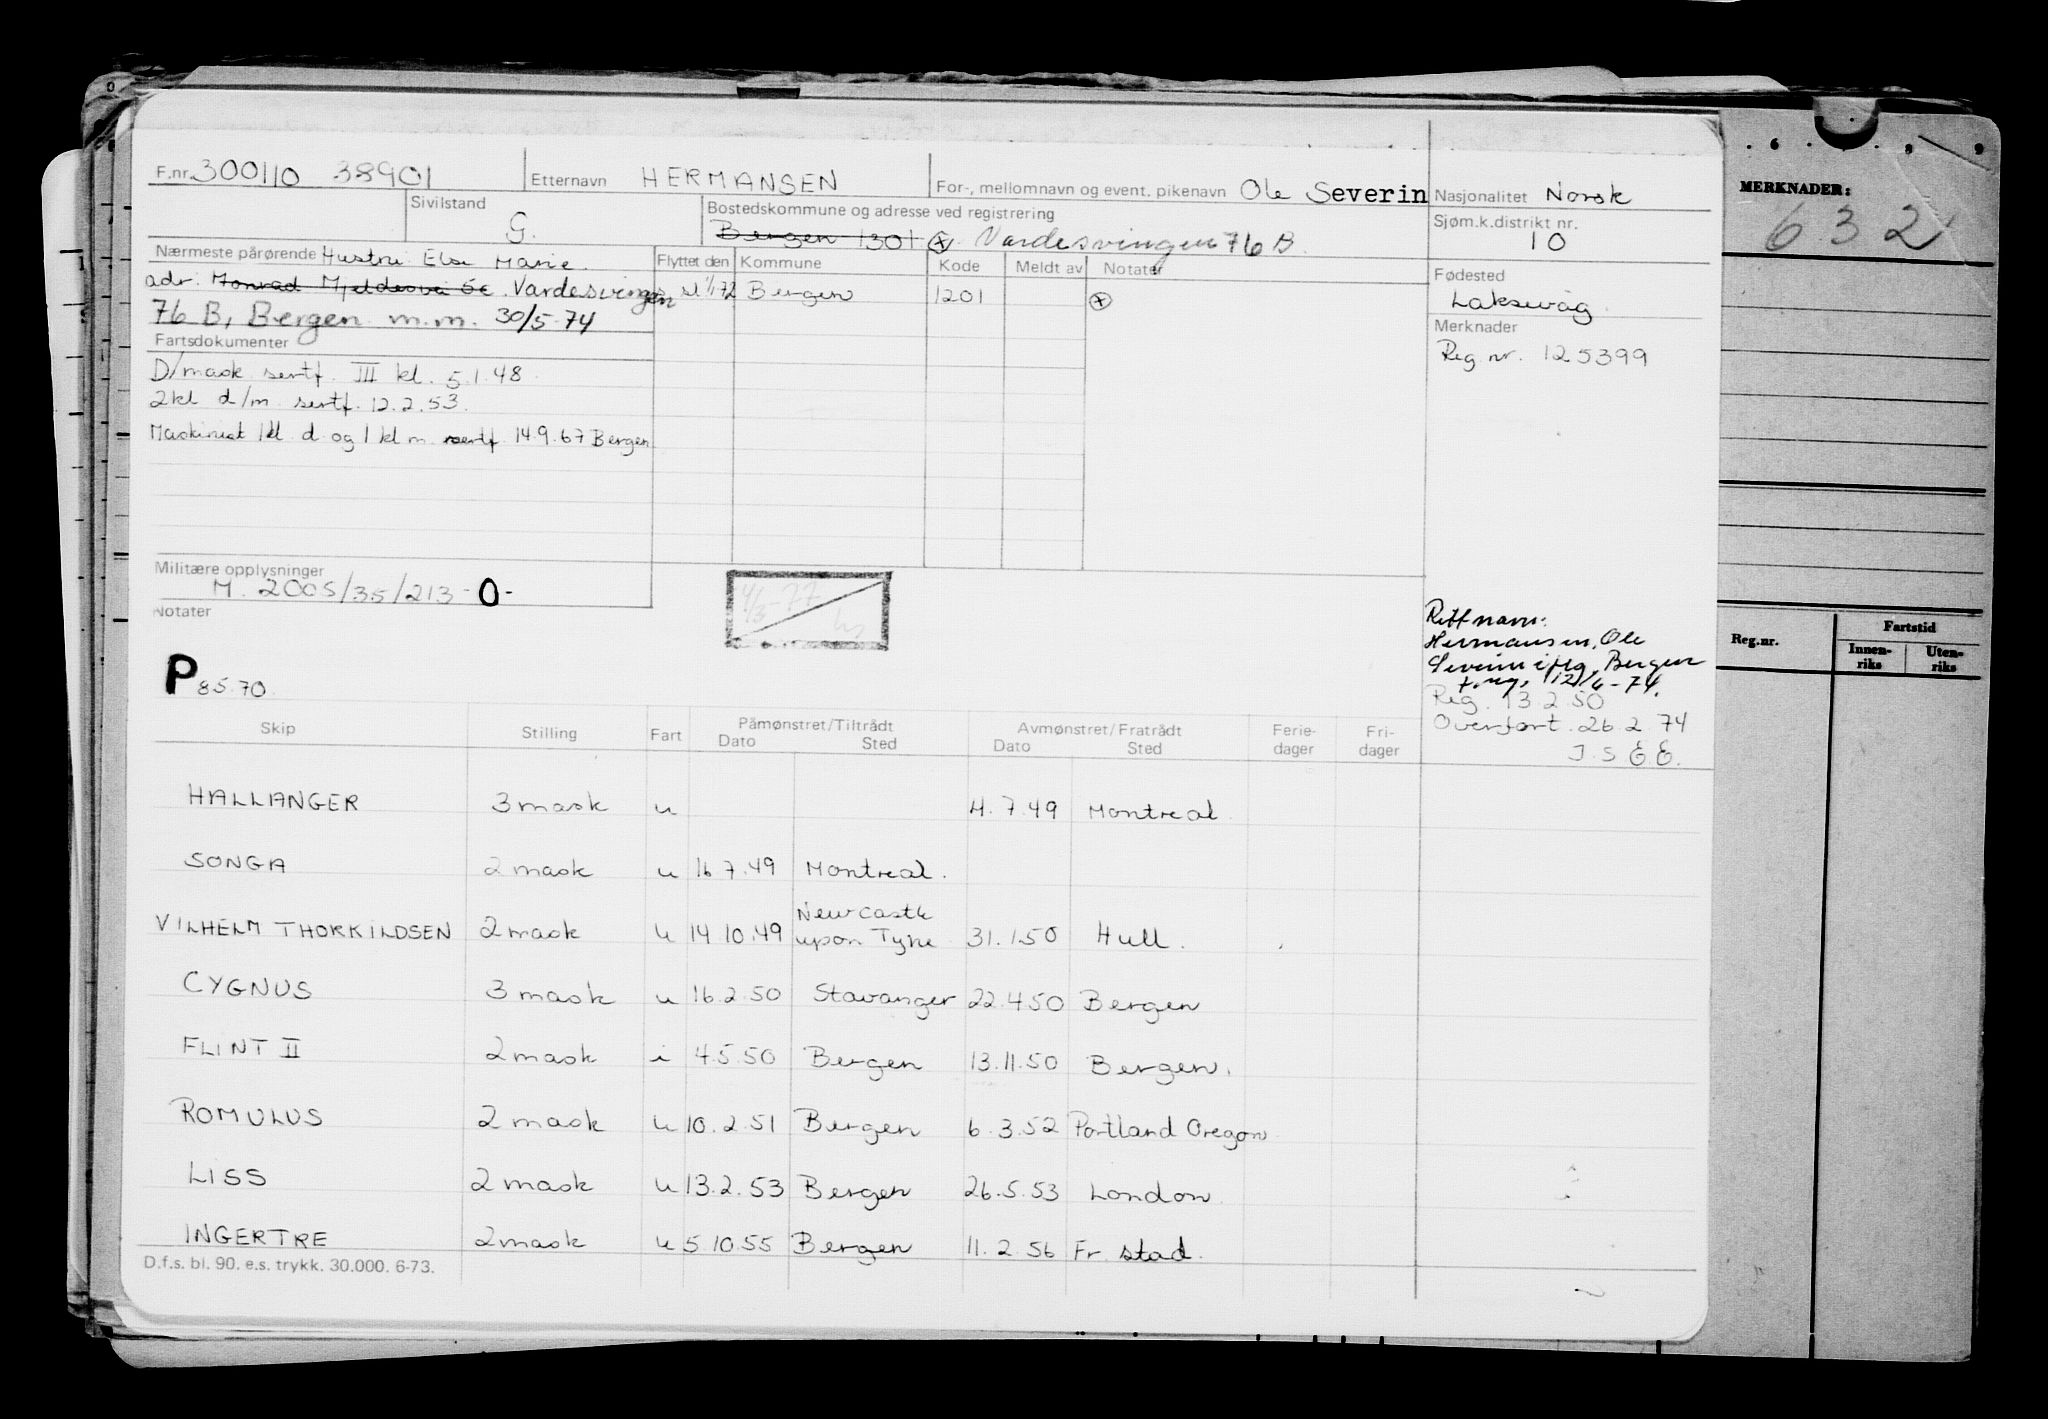 F.nr. 300110 38901 Etternavn HERMANSEN For-, mellomnavn og event. pikenavn Ole Severin Nasjonalitet Norsk
Sivilstand G. Bostedskommune og adresse ved registrering Bergen 1301 Vardesvingen 76 B Sjøm.k.distrikt nr. 10
Nærmeste pårørende Hustru: Else Marie. Flyttet den Kommune Kode Meldt av Notater Fødested
adr: Konrad Mjeldesvei 6c. Vardesvingen 1/1 72 Bergen 1201 Laksevåg
76 B, Bergen m.m. 30/5-74 Merknader
Fartsdokumenter Reg. nr. 125399
D/mask sertf. III kl. 5.1.48
2kl d/m sertf. 12.2.53.
Maskinist 1kl. d. og 1 kl m. sertf. 14.9.67 Bergen
Militære opplysninger
M. 2005/35/213-0-
4/3-77
Notater
P 85.70
Rett navn:
Hermansen, Ole
Severin
Bergen
12/6-74.
Reg. 13.2.50
Overført. 26.2.74
J.S E.E.
Skip Stilling Fart Påmønstret/Tiltrådt Dato Sted Avmønstret/Fratrådt Dato Sted Ferie-dager Fri-dager
HALLANGER 3 mask u 4.7.49 Montreal
SONGA 2 mask u 16.7.49 Montreal.
VILHELM THORKILDSEN 2 mask u 14.10.49 Newcastle upon Tyne 31.1.50 Hull.
CYGNUS 3 mask u 16.2.50 Stavanger 22.4.50 Bergen
FLINT II 2 mask i 4.5.50 Bergen 13.11.50 Bergen.
ROMULUS 2 mask u 10.2.51 Bergen 6.3.52 Portland Oregon
LISS 2 mask u 13.2.53 Bergen 26.5.53 London.
INGERTRE 2 mask u 5.10.55 Bergen 11.2.56 Fr. stad.
D.f.s. bl. 90. e.s. trykk. 30.000. 6-73.
6 8 9
MERKNADER:
632
Reg.nr. Fartstid
Innen-riks Uten-riks